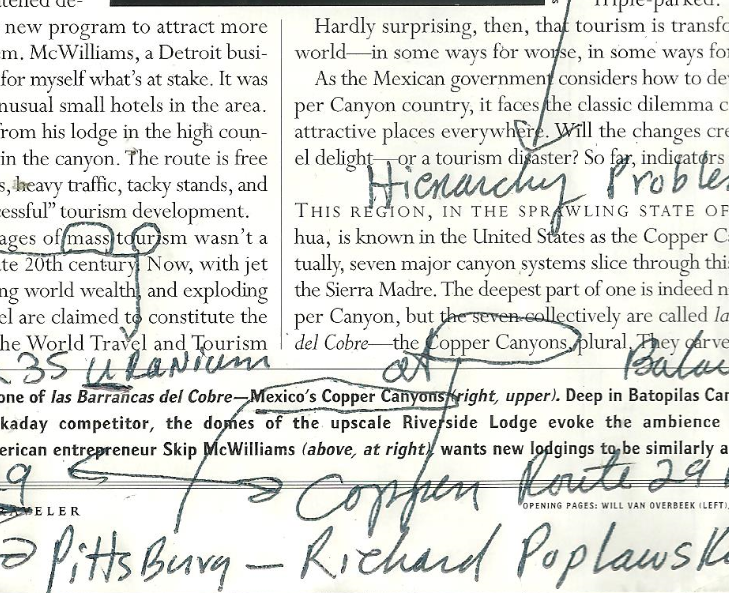 new program to attract more
em. McWilliams, a Detroit busi-
for myself what's at stake. It was
nusual small hotels in the area.
from his lodge in the high coun-
in the canyon. The route is free
s, heavy traffic, tacky stands, and
cessful" tourism development.
ages of mass tourism wasn't a
ate 20th century. Now, with jet
ng world wealth, and exploding
el are claimed to constitute the
he World Travel and Tourism
Triple-parked.
Hardly surprising, then, that tourism is transfo
world—in some ways for worse, in some ways fo
As the Mexican government considers how to de
per Canyon country, it faces the classic dilemma c
attractive places everywhere. Will the changes cre
el delight—or a tourism disaster? So far, indicators
Hierarchy Proble
THIS REGION, IN THE SPRAWLING STATE OF
hua, is known in the United States as the Copper C
tually, seven major canyon systems slice through this
the Sierra Madre. The deepest part of one is indeed n
per Canyon, but the seven collectively are called la
del Cobre—the Copper Canyons, plural. They carve
35 URANIUM at
one of las Barrancas del Cobre—Mexico's Copper Canyons (right, upper). Deep in Batopilas Can
kaday competitor, the domes of the upscale Riverside Lodge evoke the ambience
erican entrepreneur Skip McWilliams (above, at right) wants new lodgings to be similarly a
9 Copper Route 29
RAVELER
OPENING PAGES: WILL VAN OVERBEEK (LEFT),
PittsBurg — Richard Poplawsk